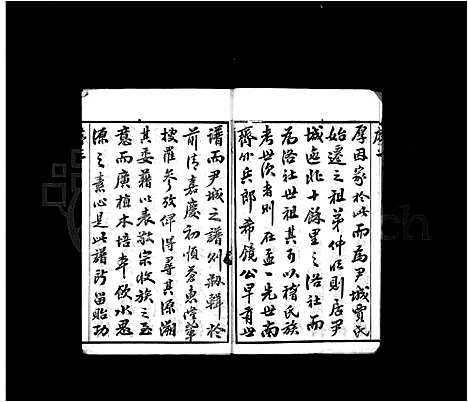 厚因家於此而為尹城賈氏
始遷之祖弟仲
則居尹
城迤北十餘里之洛社而
為洛社世祖其可以稽氏族
考世次者則在孟一先世南
齊外兵郎希鏡公早有世
譜而尹城之譜則刱輯於
前清嘉慶初
搜羅參攷俾得尋其源溯
其委藉以表敬宗收族之至
意而廣植木培本飲水思
源之素心是此譜所留貽功